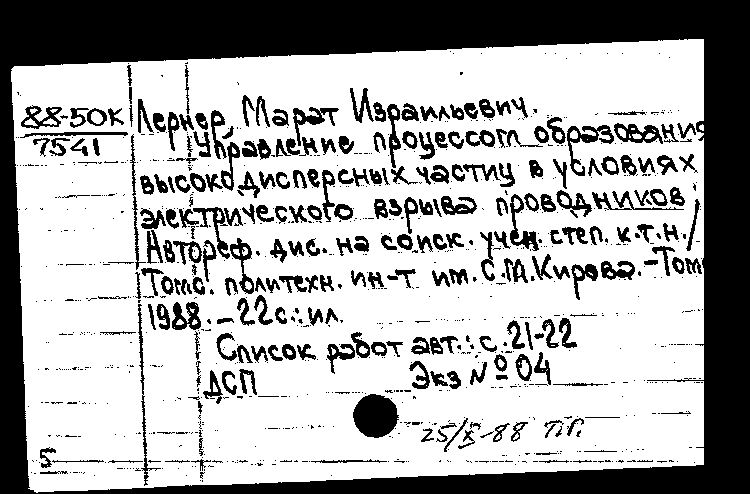 88-50К Лернер Марат Израильевич.
7541 Управление процессом образования
высокодисперсных частиц в условиях
электрического взрыва проводников;
Автореф. дис. на соиск. учен. степ. к.т.н./
Томс. политехн. ин-т им. С.М.Кирова.-Том
1988.-22с.:ил.
Список работ авт.: с.21-22
ДСП Экз №04
25/X-88
5